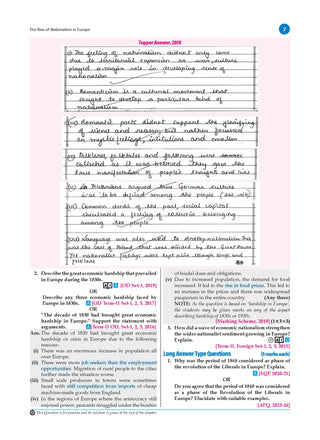 The Rise of Nationalism in Europe
7
Topper Answer, 2019
(i) The feeling of nationalism did not only come
due to territorial expansion or war, culture
played a major role in developing sense of
nationalism
(ii) Romanticism is a cultural movement that
sought to develop a particular kind of
nationalism
(iii) Romantic poets did not support the glorifying
of science and reason, but rather focused
on mystic feelings, intuitions and emotion
culture
was to be
among the people
(vi) Common deeds of the past, social capital
stimulated a feeling of collective belonging
among the people.
(vii) Language was also used to develop nationalism. This
was the case of Poland that was divided by the Great Powers
Yet nationalist feelings were kept alive through songs and
folklore
2. Describe the great economic hardship that prevailed
in Europe during the 1830s.
[OD Set-I, 2019]
OR
Describe any three economic hardship faced by
Europe in 1830s. [OD Term-II Set-I, 2, 3, 2017]
OR
"The decade of 1830 had brought great economic
hardship in Europe." Support the statement with
arguments. [Term-II OD, Set-1, 2, 3, 2016]
Ans. The decade of 1830 had brought great economic
hardship or crisis in Europe due to the following
reasons:
(i) There was an enormous increase in population all
over Europe.
(ii) There were more job seekers than the employment
opportunities. Migration of rural people to the cities
further made the situation worse.
(iii) Small scale producers in towns were sometimes
faced with stiff competition from imports of cheap
machine-made goods from England.
(iv) In the regions of Europe where the aristocracy still
enjoyed power, peasants struggled under the burden
of feudal dues and obligations.
(v) Due to increased population, the demand for food
increased. It led to the rise in food prices. This led to
an increase in the prices and there was widespread
pauperism in the entire country. (Any three)
NOTE: As the question is based on 'hardship in Europe',
the students may be given marks on any of the aspect
describing hardship of 1830s or 1930s.
[Marking Scheme, 2019] (1×3=3)
3. How did a wave of economic nationalism strengthen
the wider nationalist sentiment growing in Europe?
Explain.
[Term-II, Foreign Set-1, 2, 3, 2015]
Long Answer Type Questions (5 marks each)
1. Why was the period of 1848 considered as phase of
the revolution of the Liberals in Europe? Explain.
[SQP 2020-21]
OR
Do you agree that the period of 1848 was considered
as a phase of the Revolution of the Liberals in
Europe? Elucidate with suitable examples.
[APQ, 2023-24]
This Question is for practice and its solution is given at the end of the chapter.